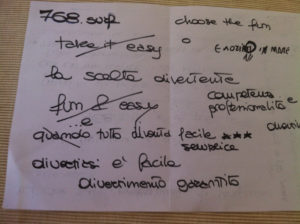 768.surf choose the fun
take it easy o
la scelta divertente
fun & easy competenza
e professionalità e
quando tutto diventa facile ***
semplice
divertirsi e' facile
divertimento garantito